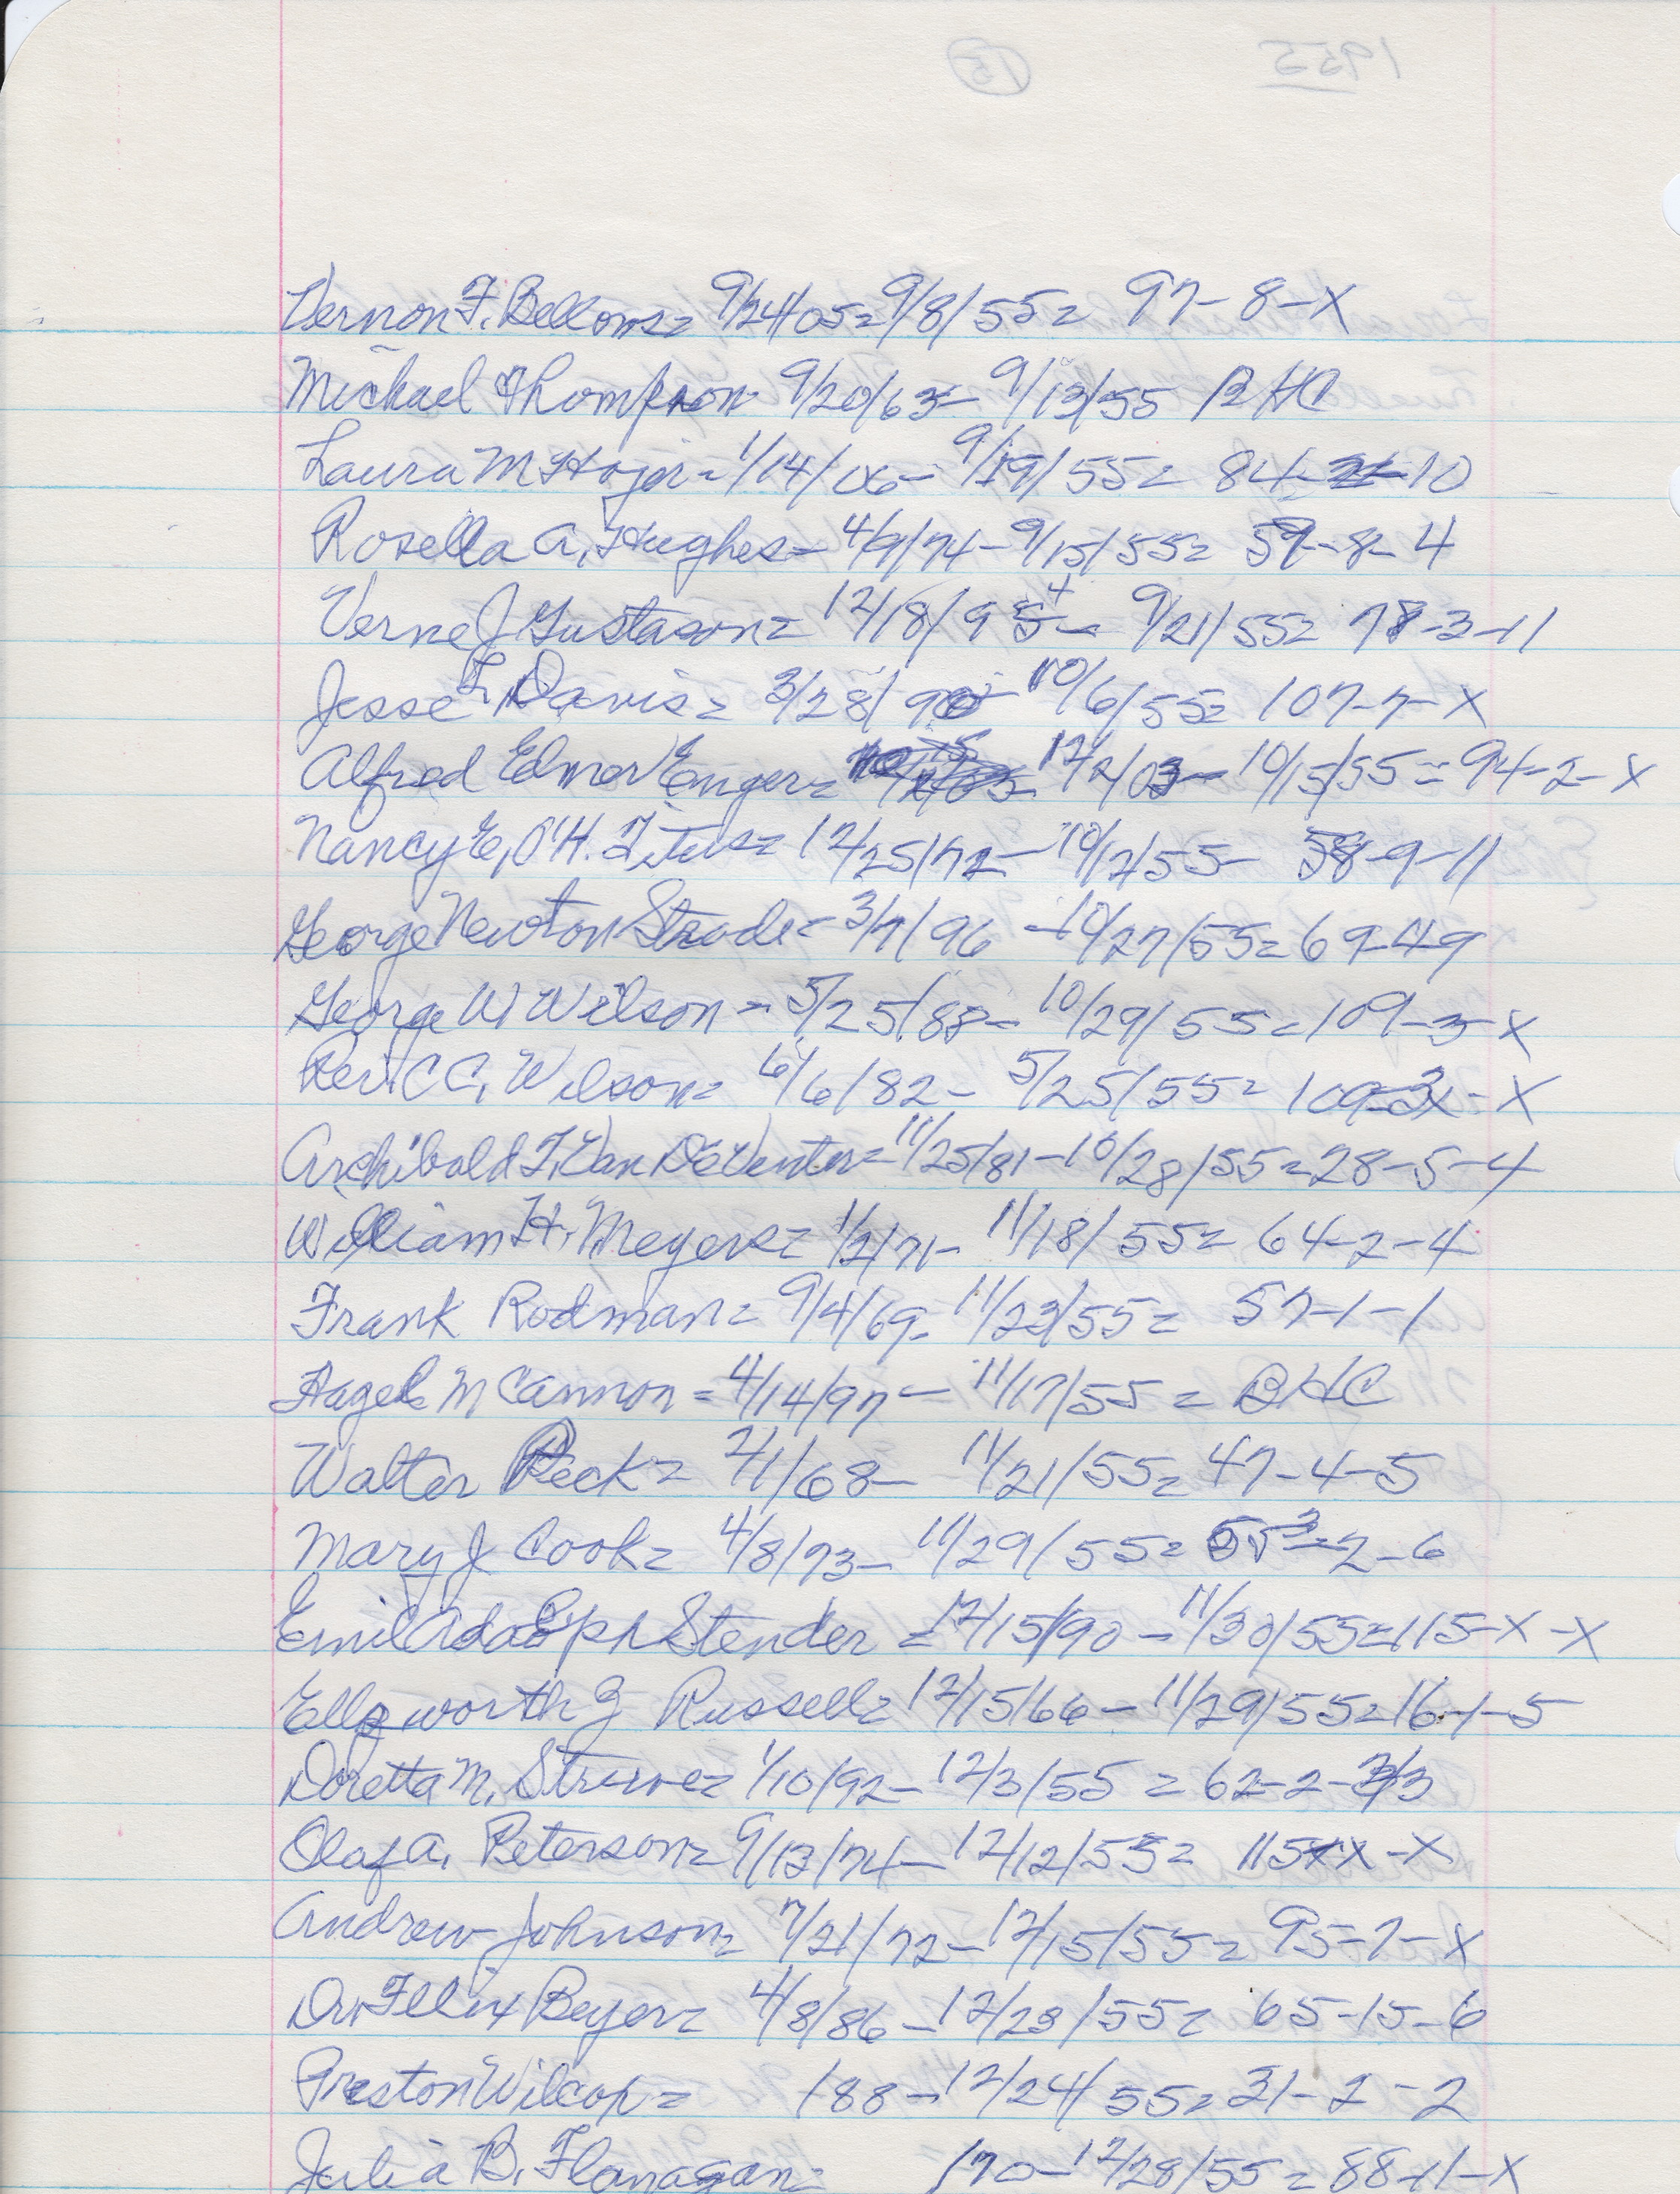 1955 (13)
Vernon F. Bellows= 9/24/05= 9/8/55= 97-8-X
Michael Thompson- 9/20/63- 9/13/55 BHC
Laura M - 1/14/06- 9/19/55= 84- -10
Rosella A. Hughes- 4/9/74- 9/15/55= 59-8-4
Verne J Gustason= 12/18/95 4 - 9/21/55= 78-3-11
Jesse L. Davis= 3/28/90- 10/6/55= 107-7-X
Alfred Elmer Enger= 12/2/03- 10/15/55= 94-2-X
Nancy E. O'H. Titus= 12/25/72- 10/12/55- 58-9-11
George Newton Strode- 3/7/96 -10/27/55= 69-4-9
George W Wilson - 5/25/88- 10/29/55=109-3-X
Rev. C C. Wilson= 6/6/82- 5/25/55= 109-3-X
Archibald T. Van DeVenter= 11/25/81-10/28/55=28-5-4
William H. Meyers= 1/2/71- 11/18/55= 64-2-4
Frank Rodman= 9/4/69- 11/23/55= 57-1-1
Hazel M Cannon = 4/14/97 - 11/17/55 = BHC
Walter Peck= 2/1/68- 11/21/55= 47-4-5
Mary J Cook= 4/8/73- 11/29/55= 55 3-2-6
Emil Adolph Stender =12/15/90 - 11/30/55=115-X-X
Ellsworth Z Russell= 12/15/66- 11/29/55=16-1-5
Doretta M. Struve= 1/10/92- 12/3/55 = 62-2- 3
Olaf A. Peterson= 9/13/74- 12/12/55= 115-X-X
Andrew Johnson= 7/21/72-12/15/55= 95-7-X
Dr. Felix Beyer= 4/8/86 -12/23/55= 65-15-6
Preston Wilcox= /88-12/24/55= 31-2-2
Julia B. Flanagan= /70-12/28/55= 88-11-X